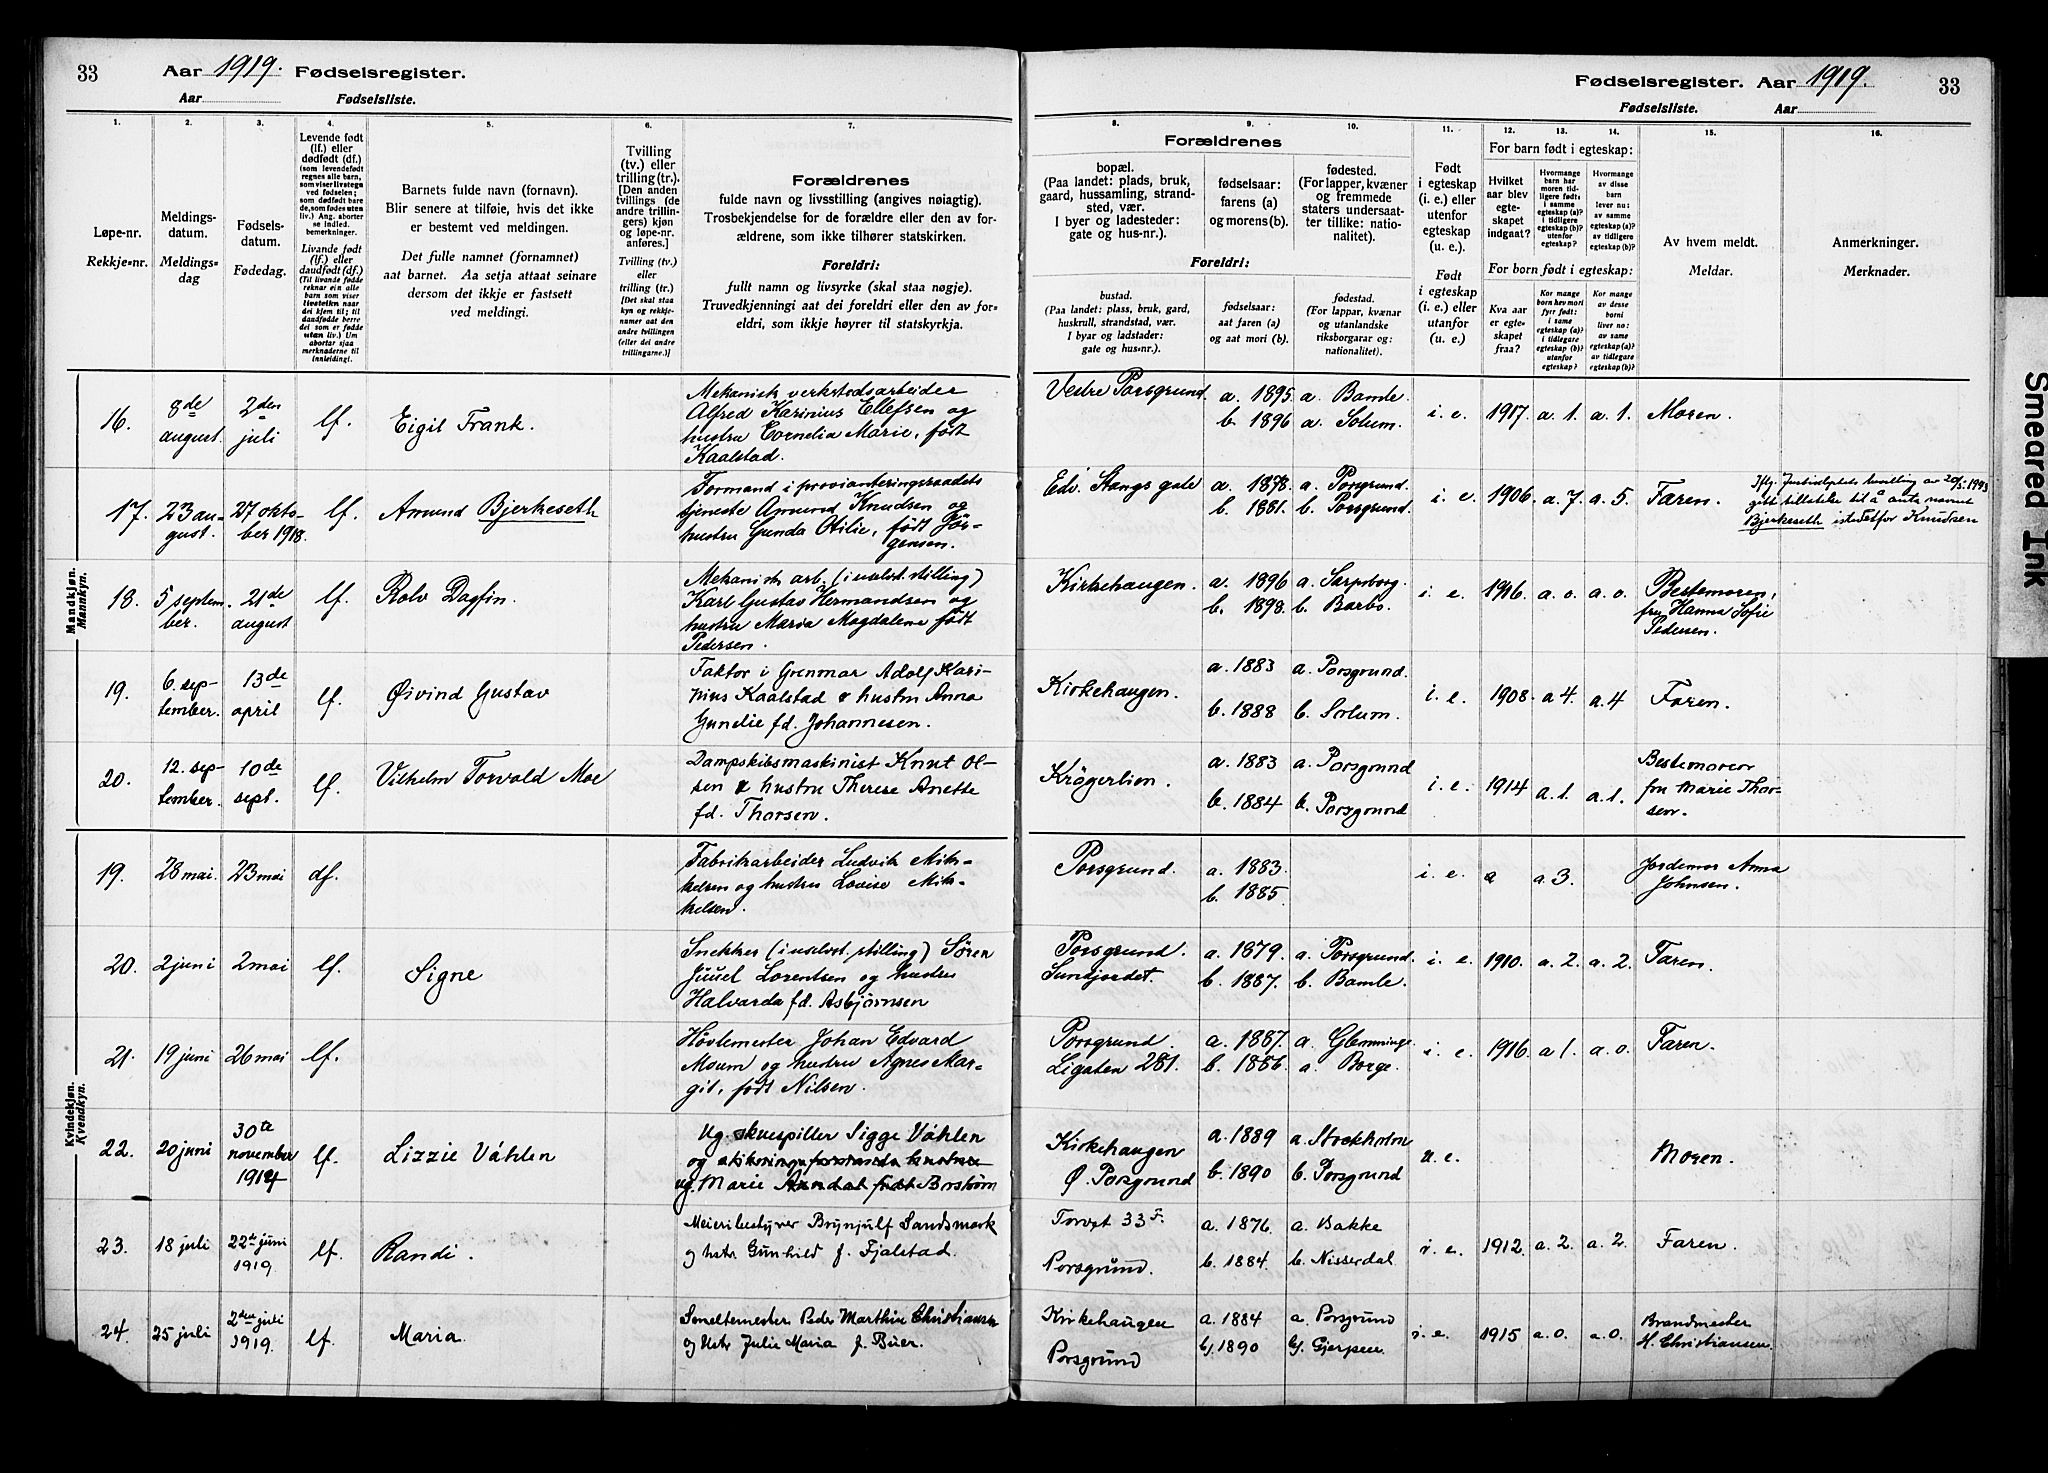 33 Aar 1919. Fødselsregister.
Aar Fødselsliste.
1. 2. 3. 4. 5. 6. 7.
Løpe-nr.
Rekkje-nr.
Meldings-
datum.
Meldings-
dag
Fødsels-
datum.
Fødedag.
Levende født
(lf.) eller
dødfødt (df.)
(som levendefødt
regnes alle barn,
som viser livstegn
ved fødselen;
som dødfødt bare
de, som fødes uten
liv.) Ang. aborter
se indled.
bemerkninger.
Livande født
(lf.) eller
daudfødt (df.)
(Til livande fødde
reknar ein alle
barn som viser
livsteikn naar
dei kjem til; til
daudfødde berre
dei som er fødde
utan liv.) Um
abortar sjaa
merknaderne til
innleiding!.
Barnets fulde navn (fornavn).
Blir senere at tilføie, hvis det ikke
er bestemt ved meldingen.
Det fulle namnet (fornamnet)
aat barnet. Aa setja attaat seinare
dersom det ikkje er fastsett
ved meldingi.
Tvilling
(tv.) eller
trilling (tr.).
[Den anden
tvillings (de
andre trillin-
gers) kjøn
og løpe-nr.
anføres.]
Tvilling (tv.)
eller
trilling (tr.)
[Det skal staa
kyn og rekkje-
numer aat den
andre tvillingen
(eller dei andre
trillingarne.)]
Forældrenes
fulde navn og livsstilling (angives nøiagtig).
Trosbekjendelse for de forældre eller den av for-
ældrene, som ikke tilhører statskirken.
Foreldri:
fullt namn og livsyrke (skal staa nøgje).
Truvedkjenningi aat dei foreldri eller den av for-
eldri, som ikkje høyrer til statskyrkja.
Mandkjøn.
Mannkyn.
16. 8de august. 2den juli lf. Eigil Frank.
Mekanisk verkstedsarbeider
Alfred Karinius Ellefsen og
hustru Cornelia Marie, født
Kaalstad.
17. 23 au-
gust. 27 okto-
ber 1918. lf. Amund Bjerkeseth
Formand i provianteringsraadets
tjeneste Amund Knudsen og
hustru Gunda Otilie, født Jør-
gensen.
18. 5 septem-
ber. 21de august lf. Rolv Dagfin.
Mekanisk arb. (i uselvst. stilling)
Karl Gustav Hermandsen og
hustru Maria Magdalene født
Pedersen.
19. 6. sep-
tember. 13de april lf. Øivind Gustav
Faktor i Grenmar Adolf Kari-
nius Kaalstad & hustru Anna
Gunelie fd. Johannesen.
20. 12. sep-
tember. 10de sept. lf. Vilhelm Torvald Moe
Dampskibsmaskinist Knut Ol-
sen & hustru Therese Anette
fd. Thorsen.
Kvindekjøn.
Kvendkyn.
19. 28 mai. 23 mai df.
Fabrikarbeider Ludvik Mik-
kelsen og hustru Lovise Mik-
kelsen.
20. 2 juni 2 mai lf. Signe
Snekker (i uselvst. stilling) Søren
Juuel Lorentsen og hustru
Halvarda fd. Asbjørnsen
21. 19 juni 26 mai lf.
Høvlemester Johan Edvard
Moum og hustru Agnes Mar-
git, født Nilsen.
22. 20 juni 30te november 1914 lf. Lizzie Váhlen
Ug. skuespiller Sigge Váhlen
og hustru
ug. Marie født Boström
23. 18 juli 22de juni 1919. lf. Randi.
Meieribestyrer Brynjulf Sandsmark
og hstr Gunhild f. Fjalstad.
24. 25 juli 2den juli 1919. lf. Maria.
Smeltemester Peder Marthin Christiansen
og hstr Julie Maria f. Buer.
Fødselsregister. Aar 1919. 33
Fødselsliste. Aar
8. 9. 10. 11. 12. 13. 14. 15. 16.
Forældrenes
bopæl.
(Paa landet: plads, bruk,
gaard, hussamling, strand-
sted, vær.
I byer og ladesteder:
gate og hus-nr.).
fødselsaar:
farens (a)
og morens (b).
fødested.
(For lapper, kvæner
og fremmede
staters undersaat-
ter tillike: natio-
nalitet).
Foreldri:
bustad.
(Paa landet: plass, bruk, gard,
huskrull, strandstad, vær.
I byar og ladstader:
gate og hus-nr.).
fødselsaar:
aat faren (a)
og aat mori (b).
fødestad.
(For lappar, kvænar
og utanlandske
riksborgarar og:
nationalitet).
Født
i egteskap
(i. e.) eller
utenfor
egteskap
(u. e.).
Født
i egteskap
(i. e.) eller
utanfor
(u. e.)
For barn født i egteskap:
Hvilket
aar blev
egte-
skapet
indgaat?
Hvormange
barn har
moren tid-
ligere født:
i samme
egteskap (a)?
i tidligere
egteskap (b)?
utenfor
egteskap?
Hvormange
av disse
barn
lever nu:
av samme
egteskap (a)?
av tidligere
egteskap (b)?
For born født i egteskap:
Kva aar
er egte-
skapet
fraa?
Kor mange
born hev mori
fyrr født:
i same
egteskap (a)?
i tidlegare
egteskap (b)?
utanfor
egteskap?
Kor mange
av desse
borni
liver no:
av same
egteskap (a)?
av tidlegare
egteskap (b)?
Av hvem meldt.
Meldar.
Anmerkninger.
Merknader.
Vestre Porsgrund. a. 1895. a. Bamle. i. e. 1917. a. 1. a. 1. Moren.
b. 1896 a. Solum.
Edv. Stangs gate a. 1878. a. Porsgrund. i. e. 1906. a. 7. a. 5. Faren.
b. 1881. b. Porsgrund.
Iflg. Justisdeptets bevilling av 1943
gitt tillatelse til å anta navnet
Bjerkeseth istedetfor Knudsen
Kirkehaugen. a. 1896 a. Sarpsborg. i. e. 1916. a. 0. a. 0. Bestemoren,
b. 1898. b. Barbo. fru Hanna Sofie
Pedersen.
Kirkehaugen. a. 1883 a. Porsgrund. i. e. 1908. a 4. a. 4 Faren.
b. 1888 b. Solum.
Krøgerlien. a. 1883 a. Porsgrund i. e. 1914 a. 1. a. 1. Bestemoren
b. 1884 b. Porsgrund fru Marie Thor-
sen.
Porsgrund. a. 1883. i. e. a a 3. Jordemor Anna
b. 1885. Johnsen.
Porsgrund. a. 1879. a. Porsgrund. i. e. 1910. a. 2. a. 2. Faren.
Sundjordet. b. 1887. b. Bamle.
Porsgrund. a. 1887. a. Glemminge i. e. 1916. a 1. a. 0. Faren.
Ligaten 281. b. 1886. a. Borge.
Kirkehaugen a. 1889 a. Stockholm u. e. Moren.
Ø. Porsgrund b. 1890 b. Porsgrund
Torvet 33 F. a. 1876. a. Bakke i. e. 1912. a. 2. a. 2. Faren.
Porsgrund. b. 1884. b. Nisserdal
Kirkehaugen a. 1884 a. Porsgrund i. e. 1915 a. 0. a. 0. Brandmester
Porsgrund b. 1890 b. Gjerpen. H. Christiansen.
Smeared Ink